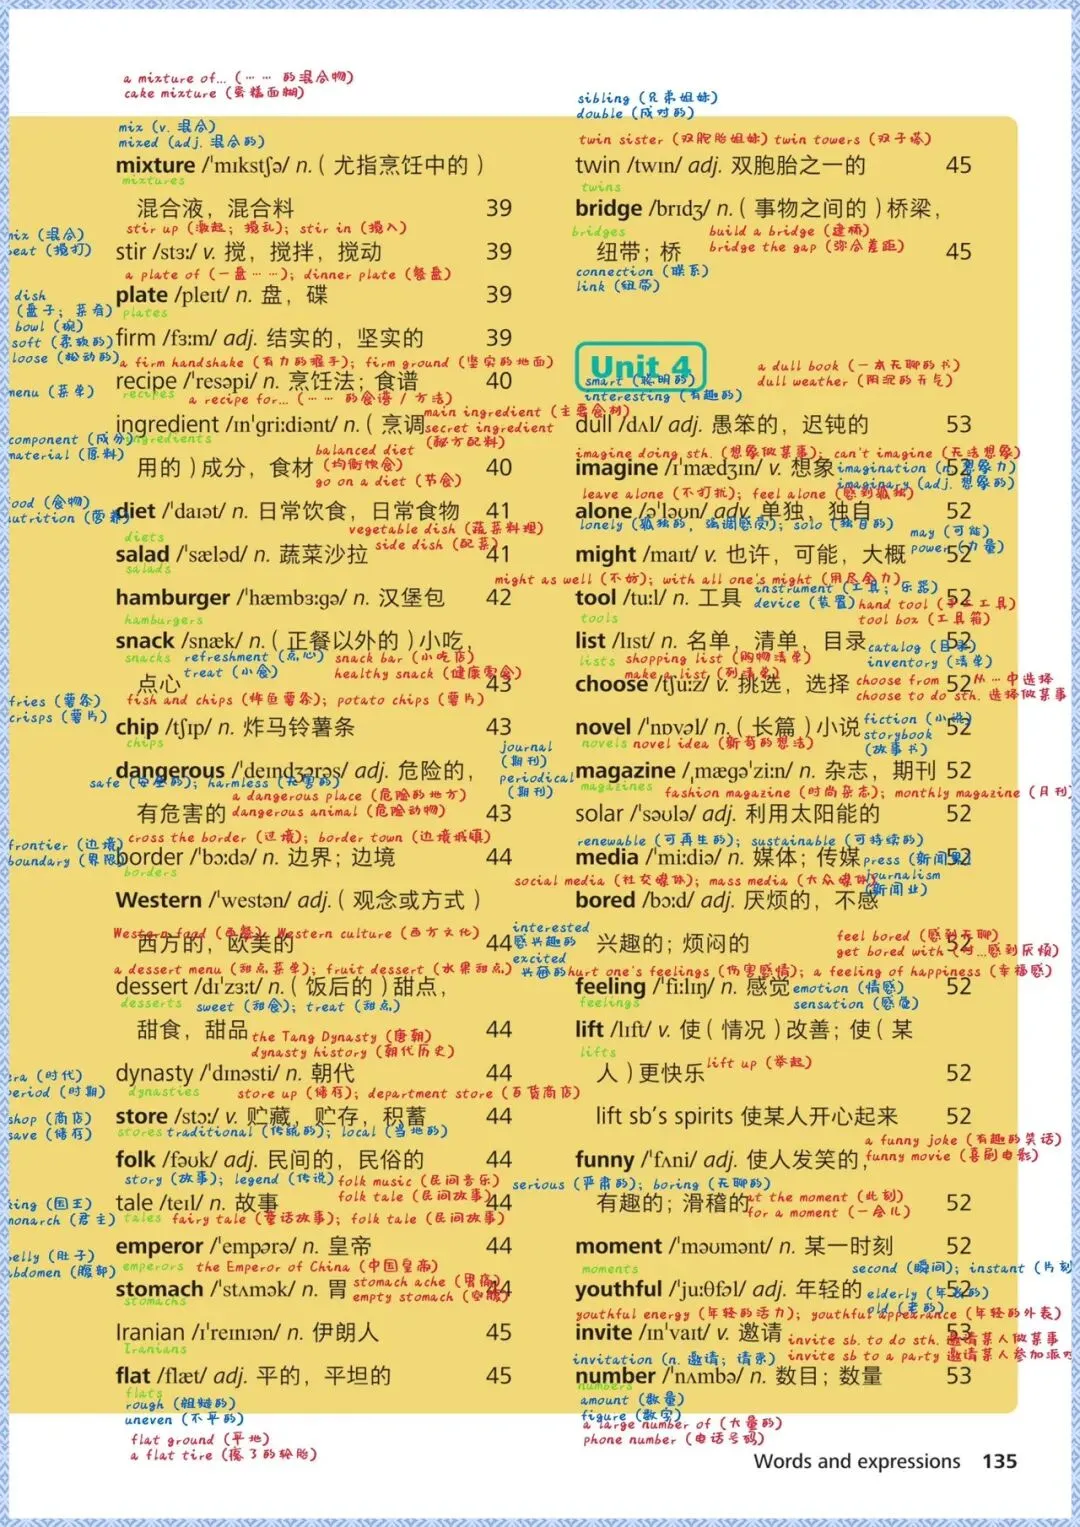 a mixture of... (…… 的混合物)
cake mixture (蛋糕面糊)
mix (v. 混合)
mixed (adj. 混合的)
mixture /ˈmɪkstʃə/ n.（尤指烹饪中的）
mixtures
混合液，混合料 39
stir up (激起；搅乱); stir in (搅入)
mix (混合)
beat (搅打)
stir /stɜː/ v. 搅，搅拌，搅动 39
a plate of (一盘……); dinner plate (餐盘)
dish
(盘子；菜肴)
plate /pleɪt/ n. 盘，碟 39
plates
bowl (碗)
soft (柔软的)
loose (松动的)
firm /fɜːm/ adj. 结实的，坚实的 39
a firm handshake (有力的握手); firm ground (坚实的地面)
menu (菜单)
recipe /ˈresəpi/ n. 烹饪法；食谱 40
recipes
a recipe for... (…… 的食谱 / 方法)
main ingredient (主要食材)
secret ingredient
(秘方配料)
ingredient /ɪnˈɡriːdiənt/ n.（烹调
ingredients
component (成分)
material (原料)
balanced diet
(均衡饮食)
go on a diet (节食)
用的）成分，食材 40
food (食物)
nutrition (营养)
diet /ˈdaɪət/ n. 日常饮食，日常食物 41
diets
vegetable dish (蔬菜料理)
side dish (配菜)
salad /ˈsæləd/ n. 蔬菜沙拉 41
salads
hamburger /ˈhæmbɜːɡə/ n. 汉堡包 42
hamburgers
snack /snæk/ n.（正餐以外的）小吃，
snacks
refreshment (点心)
treat (小食)
snack bar (小吃店)
healthy snack (健康零食)
点心 43
fish and chips (炸鱼薯条); potato chips (薯片)
fries (薯条)
crisps (薯片)
chip /tʃɪp/ n. 炸马铃薯条 43
chips
dangerous /ˈdeɪndʒərəs/ adj. 危险的，
safe (安全的); harmless (无害的)
a dangerous place (危险的地方)
dangerous animal (危险动物)
有危害的 43
cross the border (过境); border town (边境城镇)
frontier (边境)
boundary (界限)
border /ˈbɔːdə/ n. 边界；边境 44
borders
Western /ˈwestən/ adj.（观念或方式）
Western food (西餐); Western culture (西方文化)
西方的，欧美的 44
a dessert menu (甜点菜单); fruit dessert (水果甜点)
dessert /dɪˈzɜːt/ n.（饭后的）甜点，
desserts
sweet (甜食); treat (甜点)
甜食，甜品 44
the Tang Dynasty (唐朝)
dynasty history (朝代历史)
era (时代)
period (时期)
dynasty /ˈdɪnəsti/ n. 朝代 44
dynasties
store up (储存); department store (百货商店)
shop (商店)
save (储存)
store /stɔː/ v. 贮藏，贮存，积蓄 44
stores
traditional (传统的); local (当地的)
folk /fəʊk/ adj. 民间的，民俗的 44
story (故事); legend (传说)
folk music (民间音乐)
folk tale (民间故事)
tale /teɪl/ n. 故事 44
tales
fairy tale (童话故事); folk tale (民间故事)
king (国王)
monarch (君主)
emperor /ˈempərə/ n. 皇帝 44
emperors
the Emperor of China (中国皇帝)
belly (肚子)
abdomen (腹部)
stomach /ˈstʌmək/ n. 胃 44
stomachs
stomach ache (胃痛)
empty stomach (空腹)
Iranian /ɪˈreɪnɪən/ n. 伊朗人 45
Iranians
flat /flæt/ adj. 平的，平坦的 45
flats
rough (粗糙的)
uneven (不平的)
flat ground (平地)
a flat tire (瘪了的轮胎)
sibling (兄弟姐妹)
double (成对的)
twin sister (双胞胎姐妹) twin towers (双子塔)
twin /twɪn/ adj. 双胞胎之一的 45
twins
bridge /brɪdʒ/ n.（事物之间的）桥梁，
bridges
build a bridge (建桥)
bridge the gap (弥合差距)
纽带；桥 45
connection (联系)
link (纽带)
Unit 4
smart (聪明的)
interesting (有趣的)
a dull book (一本无聊的书)
dull weather (阴沉的天气)
dull /dʌl/ adj. 愚笨的，迟钝的 53
imagine doing sth. (想象做某事); can't imagine (无法想象)
imagine /ɪˈmædʒɪn/ v. 想象 52
imagination (n. 想象力)
imaginary (adj. 想象的)
leave alone (不打扰); feel alone (感到孤独)
alone /əˈləʊn/ adv. 单独，独自 52
lonely (孤独的，强调感受); solo (独自的)
may (可能)
power (力量)
might /maɪt/ v. 也许，可能，大概 52
might as well (不妨); with all one's might (用尽全力)
instrument (工具；乐器)
device (装置)
tool /tuːl/ n. 工具 52
tools
hand tool (手工工具)
tool box (工具箱)
list /lɪst/ n. 名单，清单，目录 52
lists
catalog (目录)
inventory (清单)
shopping list (购物清单)
make a list (列清单)
choose /tʃuːz/ v. 挑选，选择 52
choose from 从…中选择
choose to do sth. 选择做某事
novel /ˈnɒvəl/ n.（长篇）小说 52
novels
novel idea (新奇的想法)
fiction (小说)
storybook
(故事书)
journal
(期刊)
periodical
(期刊)
magazine /ˌmæɡəˈziːn/ n. 杂志，期刊 52
magazines
fashion magazine (时尚杂志); monthly magazine (月刊
solar /ˈsəʊlə/ adj. 利用太阳能的 52
renewable (可再生的); sustainable (可持续的)
media /ˈmiːdiə/ n. 媒体；传媒 52
press (新闻界)
journalism
(新闻业)
social media (社交媒体); mass media (大众媒体)
bored /bɔːd/ adj. 厌烦的，不感
interested
感兴趣的
excited
兴奋的
兴趣的；烦闷的 52
feel bored (感到无聊)
get bored with (对…感到厌烦)
hurt one's feelings (伤害感情); a feeling of happiness (幸福感)
feeling /ˈfiːlɪŋ/ n. 感觉 52
feelings
emotion (情感)
sensation (感觉)
lift /lɪft/ v. 使（情况）改善；使（某
lifts
lift up (举起)
人）更快乐 52
lift sb's spirits 使某人开心起来 52
a funny joke (有趣的笑话)
funny movie (喜剧电影)
funny /ˈfʌni/ adj. 使人发笑的，
serious (严肃的); boring (无聊的)
有趣的；滑稽的 52
at the moment (此刻)
for a moment (一会儿)
moment /ˈməʊmənt/ n. 某一时刻 52
moments
second (瞬间); instant (片刻
youthful /ˈjuːθfəl/ adj. 年轻的 52
elderly (年长的)
old (老的)
youthful energy (年轻的活力); youthful appearance (年轻的外表)
invite /ɪnˈvaɪt/ v. 邀请 53
invite sb. to do sth. 邀请某人做某事
invite sb to a party 邀请某人参加派对
invitation (n. 邀请；请柬)
number /ˈnʌmbə/ n. 数目；数量 53
numbers
amount (数量)
figure (数字)
a large number of (大量的)
phone number (电话号码)
Words and expressions 135